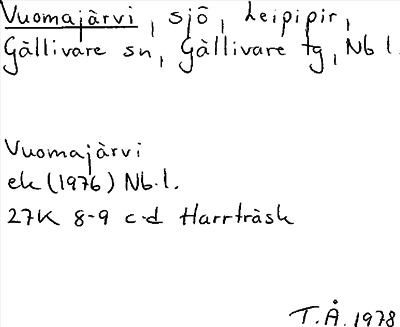 Vuomajärvi, sjö, Leipipir,
Gällivare sn, Gällivare tg, Nb l.
Vuomajärvi
ek (1976) Nb.l.
27K 8-9 c-d Harrträsk
T.Å. 1978